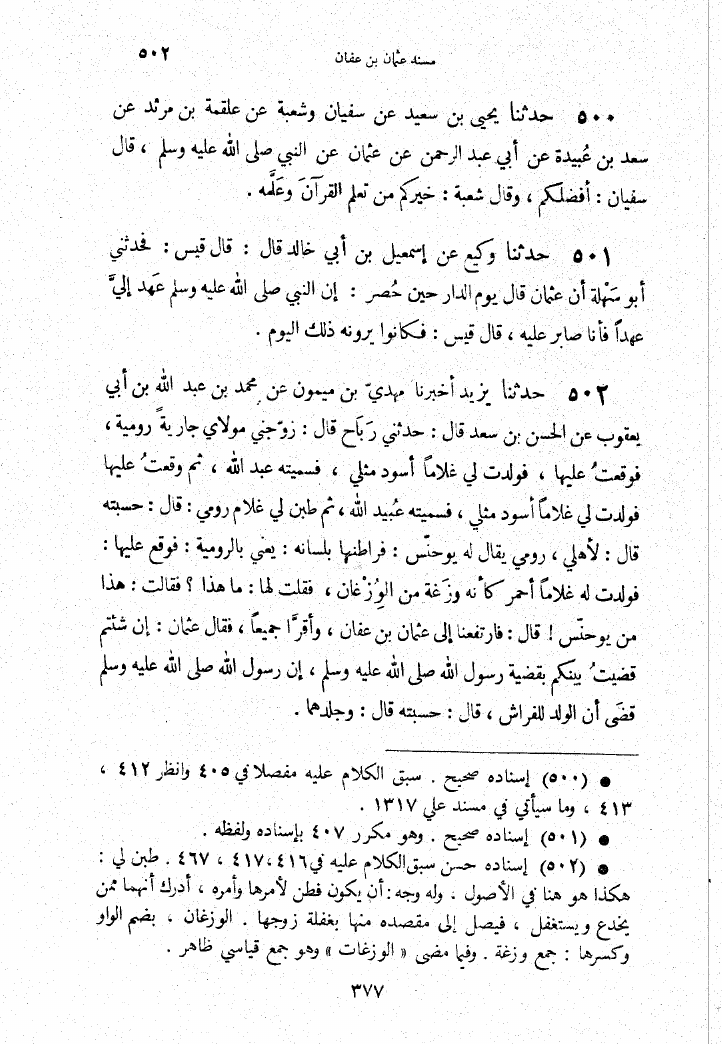 مسند عثمان بن عفان ٥٠٢
٥٠٠ حدثنا يحيى بن سعيد عن سفيان وشعبة عن علقمة بن مرثد عن
سعد بن عُبيدة عن أبي عبد الرحمن عن عثمان عن النبي صلى الله عليه وسلم ، قال
سفيان : أفضلكم ، وقال شعبة : خيركم من تعلم القرآنَ وعَلَّمه .
٥٠١ حدثنا وكيع عن إسمعيل بن أبي خالد قال : قال قيس : فحدثني
أبو سَهْلة أن عثمان قال يوم الدار حين حُصر : إن النبي صلى الله عليه وسلم عَهد إليَّ
عهداً فأنا صابر عليه ، قال قيس : فكانوا يرونه ذلك اليوم .
٥٠٢ حدثنا يزيد أخبرنا مهديّ بن ميمون عن محمد بن عبد الله بن أبي
يعقوب عن الحسن بن سعد قال : حدثني رَبَاح قال : زوّجني مولاي جاريةً رومية ،
فوقعتُ عليها ، فولدت لي غلاماً أسود مثلي ، فسميته عبد الله ، ثم وقعتُ عليها
فولدت لي غلاماً أسود مثلي ، فسميته عُبيد الله ، ثم طبن لي غلام رومي : قال : حسبته
قال : لأهلي ، رومي يقال له يوحنّس : فراطنها بلسانه : يعني بالرومية : فوقع عليها :
فولدت له غلاماً أحمر كأنه وزَغة من الوِزْغان ، فقلت لها : ما هذا ؟ فقالت : هذا
من يوحنّس ! قال : فارتفعنا إلى عثمان بن عفان ، وأقرَّا جميعاً ، فقال عثمان : إن شئتم
قضيتُ بينكم بقضية رسول الله صلى الله عليه وسلم ، إن رسول الله صلى الله عليه وسلم
قضَى أن الولد للفراش ، قال : حسبته قال : وجلدهما .
● (٥٠٠) إسناده صحيح . سبق الكلام عليه مفصلا في ٤٠٥ وانظر ٤١٢ ،
٤١٣ ، وما سيأتي في مسند علي ١٣١٧ .
● (٥٠١) إسناده صحيح . وهو مكرر ٤٠٧ بإسناده ولفظه .
● (٥٠٢) إسناده حسن سبق الكلام عليه في ٤١٦ ، ٤١٧ ، ٤٦٧ . طبن لي :
هكذا هو هنا في الأصول . وله وجه : أن يكون فطن لأمرها وأمره ، أدرك أنهما ممن
يخدع ويستغفل ، فيصل إلى مقصده منها بغفلة زوجها . الوزغان ، بضم الواو
وكسرها : جمع وزغة . وفيما مضى « الوزغات » وهو جمع قياسي ظاهر .
٣٧٧